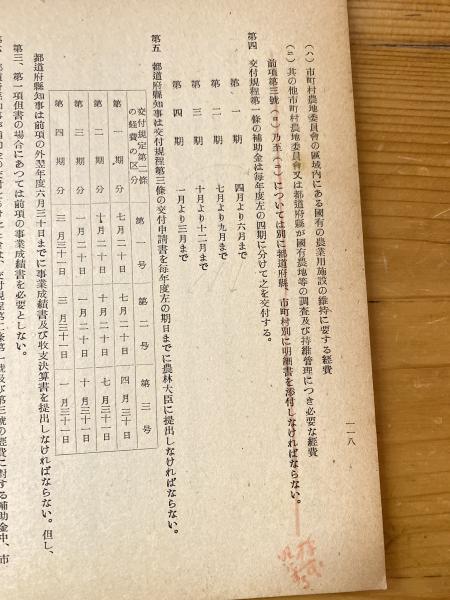 一一八
(ハ) 市町村農地委員会の區域内にある國有の農業用施設の維持に要する経費
(ニ) 其の他市町村農地委員会又は都道府縣が國有農地等の調査及び持維管理につき必要な経費
前項第三號(ロ)乃至(ニ)については別に都道府縣、市町村別に明細書を添付しなければならない。
第四 交付規程第一條の補助金は毎年度左の四期に分けて之を交付する。
第一期 四月より六月まで
第二期 七月より九月まで
第三期 十月より十二月まで
第四期 一月より三月まで
第五 都道府縣知事は交付規程第三條の交付申請書を毎年度左の期日までに農林大臣に提出しなければならない。
交付規定第一條の経費の区分 第一號 第二號 第三號
第一期分 七月二十日 七月二十日 四月三十日
第二期分 十月二十日 十月二十日 七月三十一日
第三期分 一月二十日 一月二十日 十月三十一日
第四期分 三月三十一日 三月三十一日 一月三十一日
都道府縣知事は前項の外翌年度六月三十日までに事業成績書及び收支決算書を提出しなければならない。但し、
第三、第一項但書の場合にあつては前項の事業成績書を必要としない。